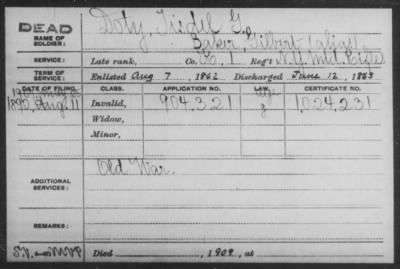 DEAD
NAME OF SOLDIER: Doty, G.
Baker, Gilbert (alias)
SERVICE: Late rank, Co. I, Reg't N.Y. Mtd. Rifles
TERM OF SERVICE: Enlisted Aug 7, 1862 Discharged June 12, 1865
DATE OF FILING. CLASS. APPLICATION NO. LAW. CERTIFICATE NO.
1890, Aug. 11 Invalid, 904.321 1,024,231
Widow,
Minor,
ADDITIONAL SERVICES: Old War.
REMARKS:
Died , 1909, at